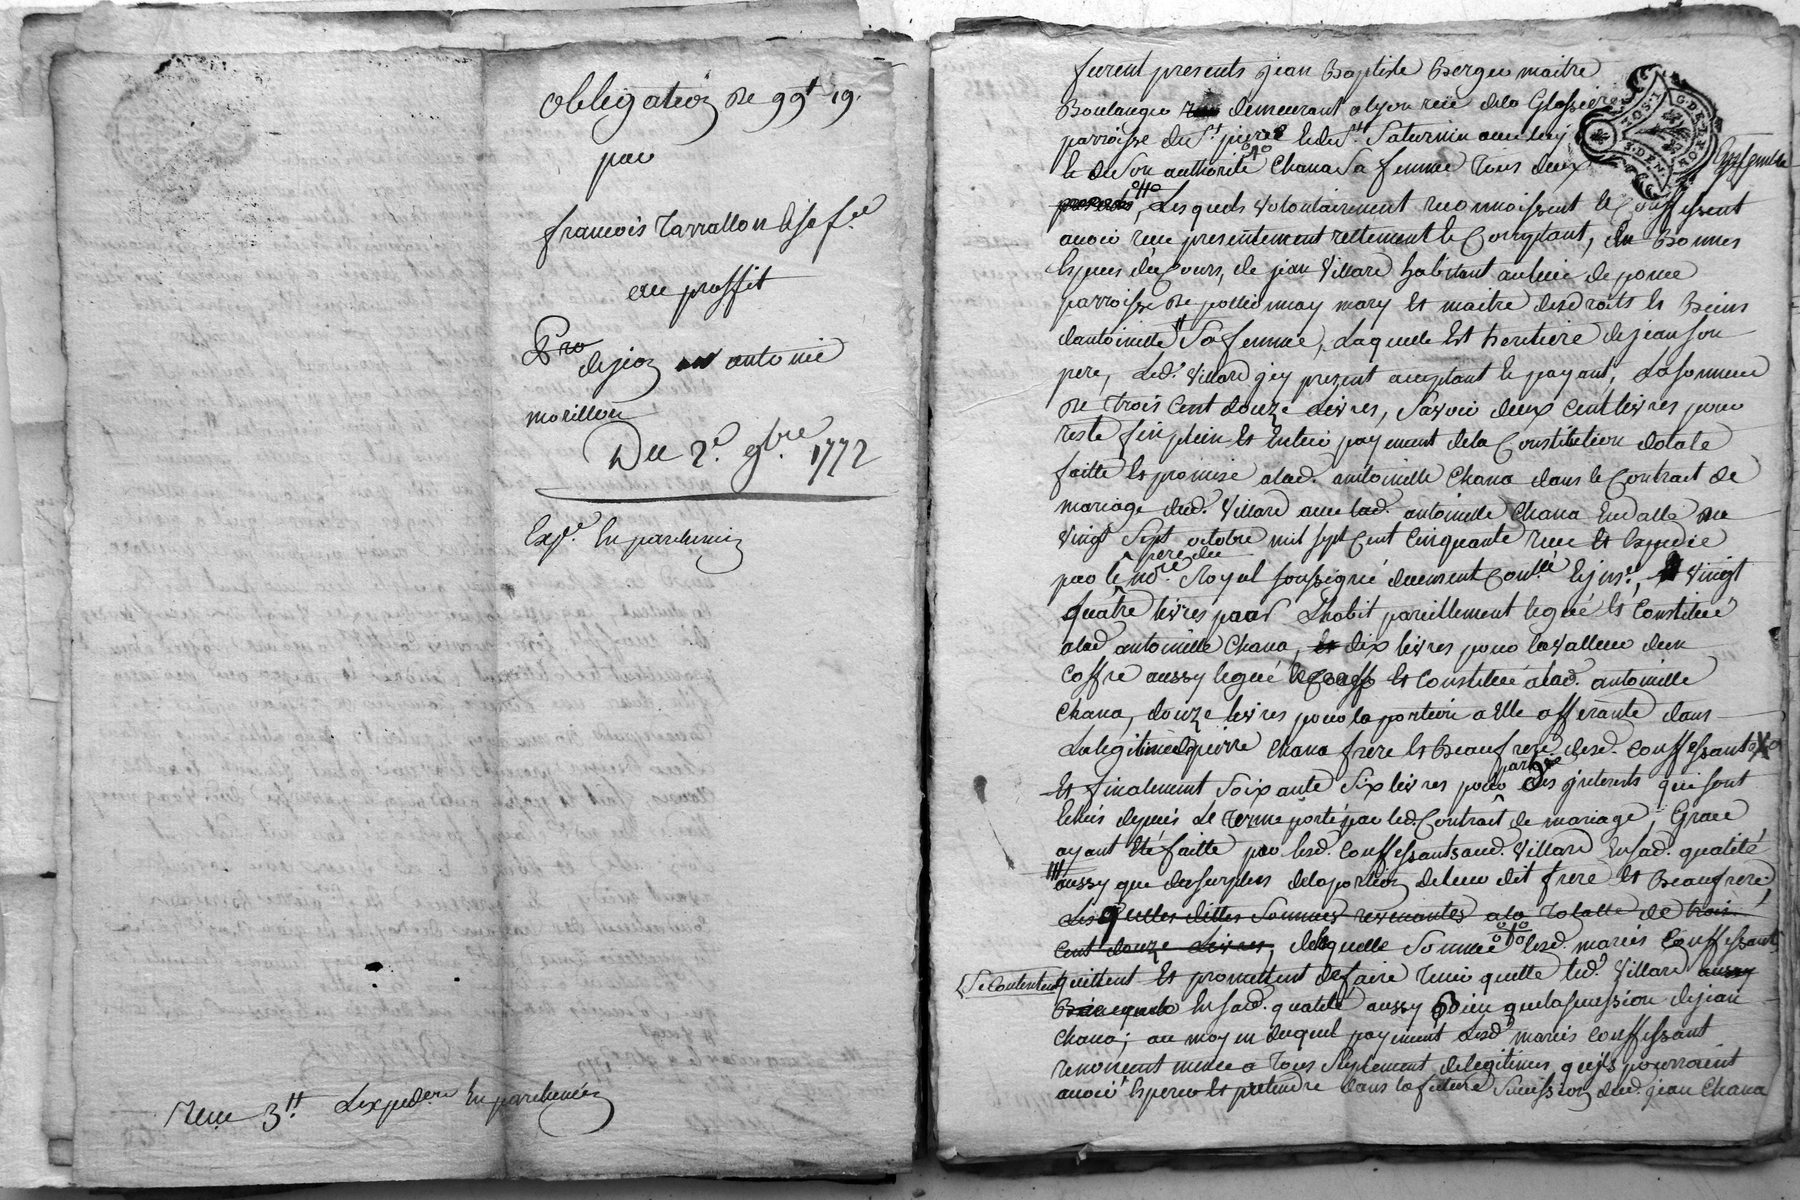 obligation de 99lt 19s
par
francois Tarrallon & sa fe
au proffit
Pro
de jean antoine
morillon
Du 2e 9bre 1772
Expé. En parchemin
Receu 3lt Lexpedon En parchemin
furent presents jean Baptiste Berger maitre
Boulanger demeurant a lyon rüe de la Glassiere
parroisse de St. pierre & de St. Saturnin avec luy
& de Son authorité Chana Sa femme Tous deux
Lesquels volontairement reconnoissent & Conffessent
avoir reçu presentement reellement & Comptant, En Bonnes
Especes du Cours, de jean Villard habitant au lieu de
parroisse de pollionnay mary et maitre des droits & Biens
dantoinette Sa femme, Laquelle Est heritiere de jean Son
pere, Led. Villard jcy present acceptant & payant, La Somme
De Trois Cent douze Livres, Savoir deux Cent livres pour
reste fin plein & Entier payement de la Constitution dotale
faitte & promise a lad. antoinette Chana dans le Contrat de
mariage dud. Villard avec lad. antoinette Chana En datte du
vingt Sept octobre mil sept Cent Cinquante reçu Et Expedié
pere du
par le nore Royal Soussigné duement Conllé & jnsé, vingt
quatre livres pour Lhabit pareillement legué & Constitué
a lad antoinette Chana, dix livres pour la valleur dun
Coffre aussy legué & Constitué a lad. antoinette
Chana, douze livres pour la portion a Elle afferante dans
La legitime de pierre Chana frere & Beaufrere desd. Conffessants
partye
Et finalement Soixante Six livres pour des jnterets qui Sont
Echus depuis Le Terme porté par led. Contrat de mariage, Grace
ayant Eté faitte par lesd. Conffessants aud. Villard En sad. qualité
aussy que du Surplus de la portion de leur dit frere & Beaufrere
Lesquelles dittes Sommes revenantes a la Totalle de trois
Cent douze Livres, de laquelle Somme lesd. mariés Conffessants
Se Contentent quittent Et promettent de faire Tenir quitte led. Villard aussy
En sad. qualité aussy Bien que la Sucession de jean
Chana; au moyen duquel payement Lesd. mariés Conffessant
renoncent meme a Tous Suplement de legitimes quils pourroient
avoir Esperer & pretendre dans la future Sucession dud. jean Chana